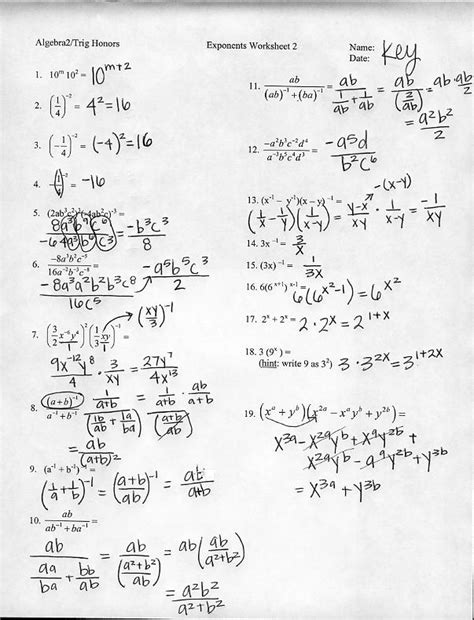 Algebra2/Trig Honors
Exponents Worksheet 2
Name: Key
Date:
1. 10^m 10^2 = 10^(m+2)
2. (1/4)^-2 = 4^2 = 16
3. (-1/4)^-2 = (-4)^2 = 16
4. = -16
8a^3b^9c^6 / -64a^3b^6c^3 = -b^3c^3 / 8
6. -8a^3b^2c^-5 / 16a^-2b^-3c^-8 = -a^5b^5c^3 / 2
-8a^3a^2b^2b^3c^8 / 16c^5
7. (3/2 x^-6y^4)^2 (1/3 xy)^-1 = (xy/3)^-1
9x^-12y^8 / 4 · 3/xy = 27y^7 / 4x^13
8. (a+b)^-1 / a^-1+b^-1 = 1/(a+b) / = 1/(a+b) · ab/(a+b)
= ab / (a+b)^2
9. (a^-1 + b^-1)^-1 =
(1/a + 1/b)^-1 = ((a+b)/ab)^-1 = ab/(a+b)
10. ab / ab^-1 + ba^-1 =
ab / (aa/ba + bb/ab) = ab / ((a^2+b^2)/ab) = ab(ab/(a^2+b^2))
= a^2b^2 / a^2+b^2
11. ab / (ab)^-1 + (ba)^-1 = ab / (1/ab + 1/ab) = ab / (2/ab) = ab·ab / 2
= a^2b^2 / 2
12. -a^2b^3c^-2d^4 / a^-3b^5c^4d^3 = -a^5d / b^2c^6
13. (x^-1 - y^-1)(x-y)^-1 = -(x-y)
(1/x - 1/y)(1/(x-y)) = (y-x)/xy · 1/(x-y) = -1/xy
14. 3x^-1 = 3/x
15. (3x)^-1 = 1/3x
= 6^(x^2)
17. 2^x + 2^x = 2·2^x = 2^(1+x)
18. 3 (9^x) =
(hint: write 9 as 3^2) 3·3^(2x) = 3^(1+2x)
19. (x^a + y^b)(x^2a - x^a y^b + y^2b) =
x^3a - x^2a y^b + x^a y^2b +
x^2a y^b - + y^3b
= x^3a + y^3b